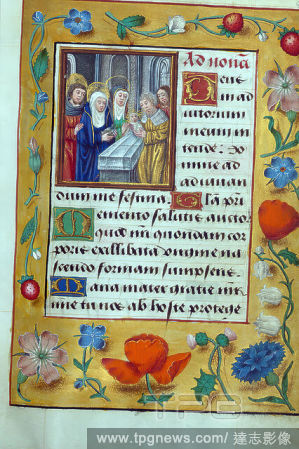 Ad nonã
Deus
in ad
iutorium
meum in
tende. Do
mine ad
adiuuan
dum me festina. Gla pri
Memento salutis auctor
quod nr̃i quondam cor
poris ex illibata virgine na
scendo formam sumpseris
Maria mater gratie mr̃
mie tu nos ab hoste protege
TPG
www.tpgnews.com/ 達志影像